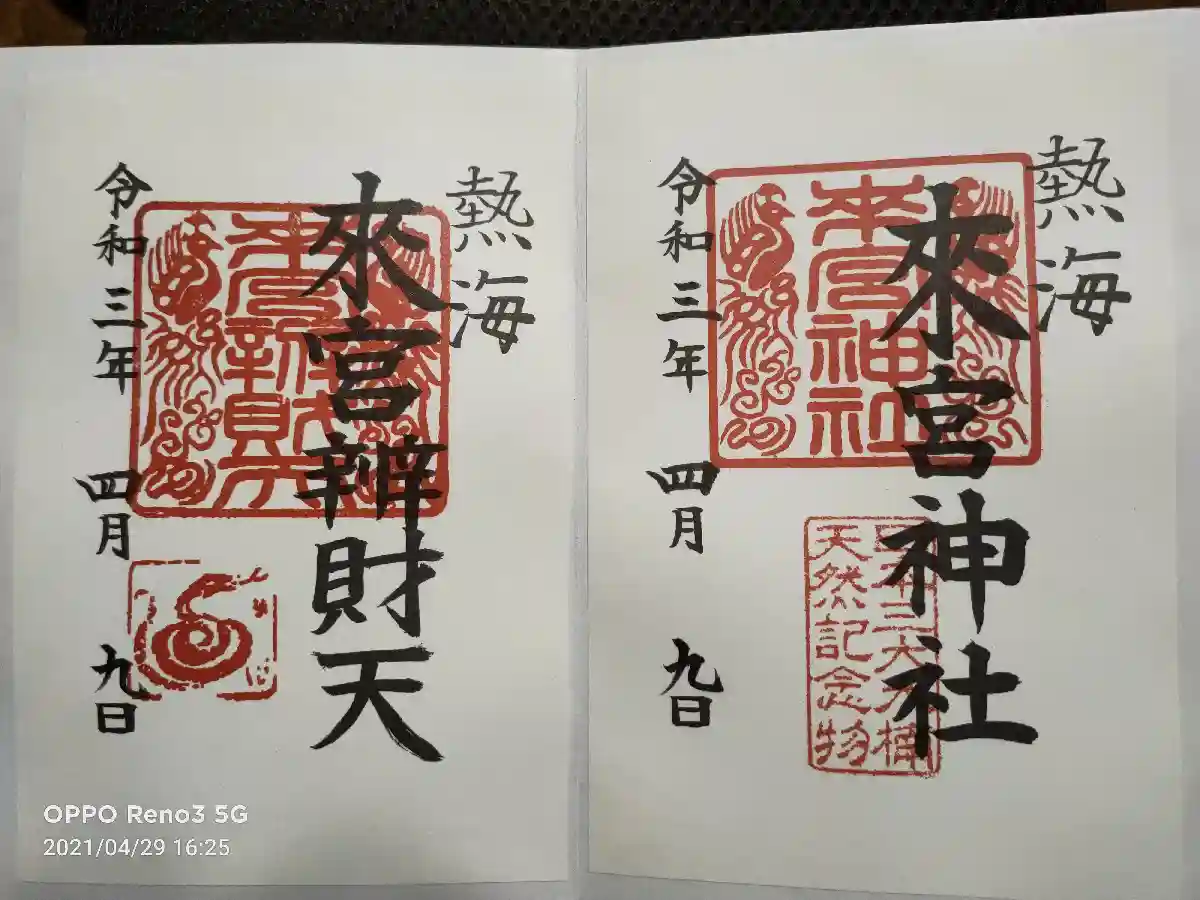 熱海
來宮神社
來宮神社
日本三大大楠
天然記念物
令和三年 四月 九日
熱海
來宮辨財天
令和三年 四月 九日
OPPO Reno3 5G
2021/04/29 16:25